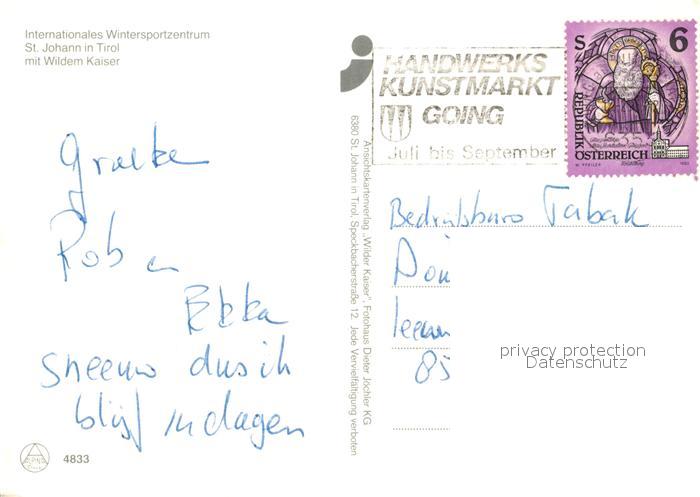 Internationales Wintersportzentrum
St. Johann in Tirol
mit Wildem Kaiser
HANDWERKS
KUNSTMARKT
GOING
Juli bis September
S 6
REPUBLIK
ÖSTERREICH
Ansichtskartenverlag „Wilder Kaiser", Fotohaus Dieter Jöchler KG
6380 St. Johann in Tirol, Speckbacherstraße 12. Jede Vervielfältigung verboten
Rob en
Ekka
sneeuw dus ik
blijf 
Tabak
85
privacy protection
Datenschutz
4833